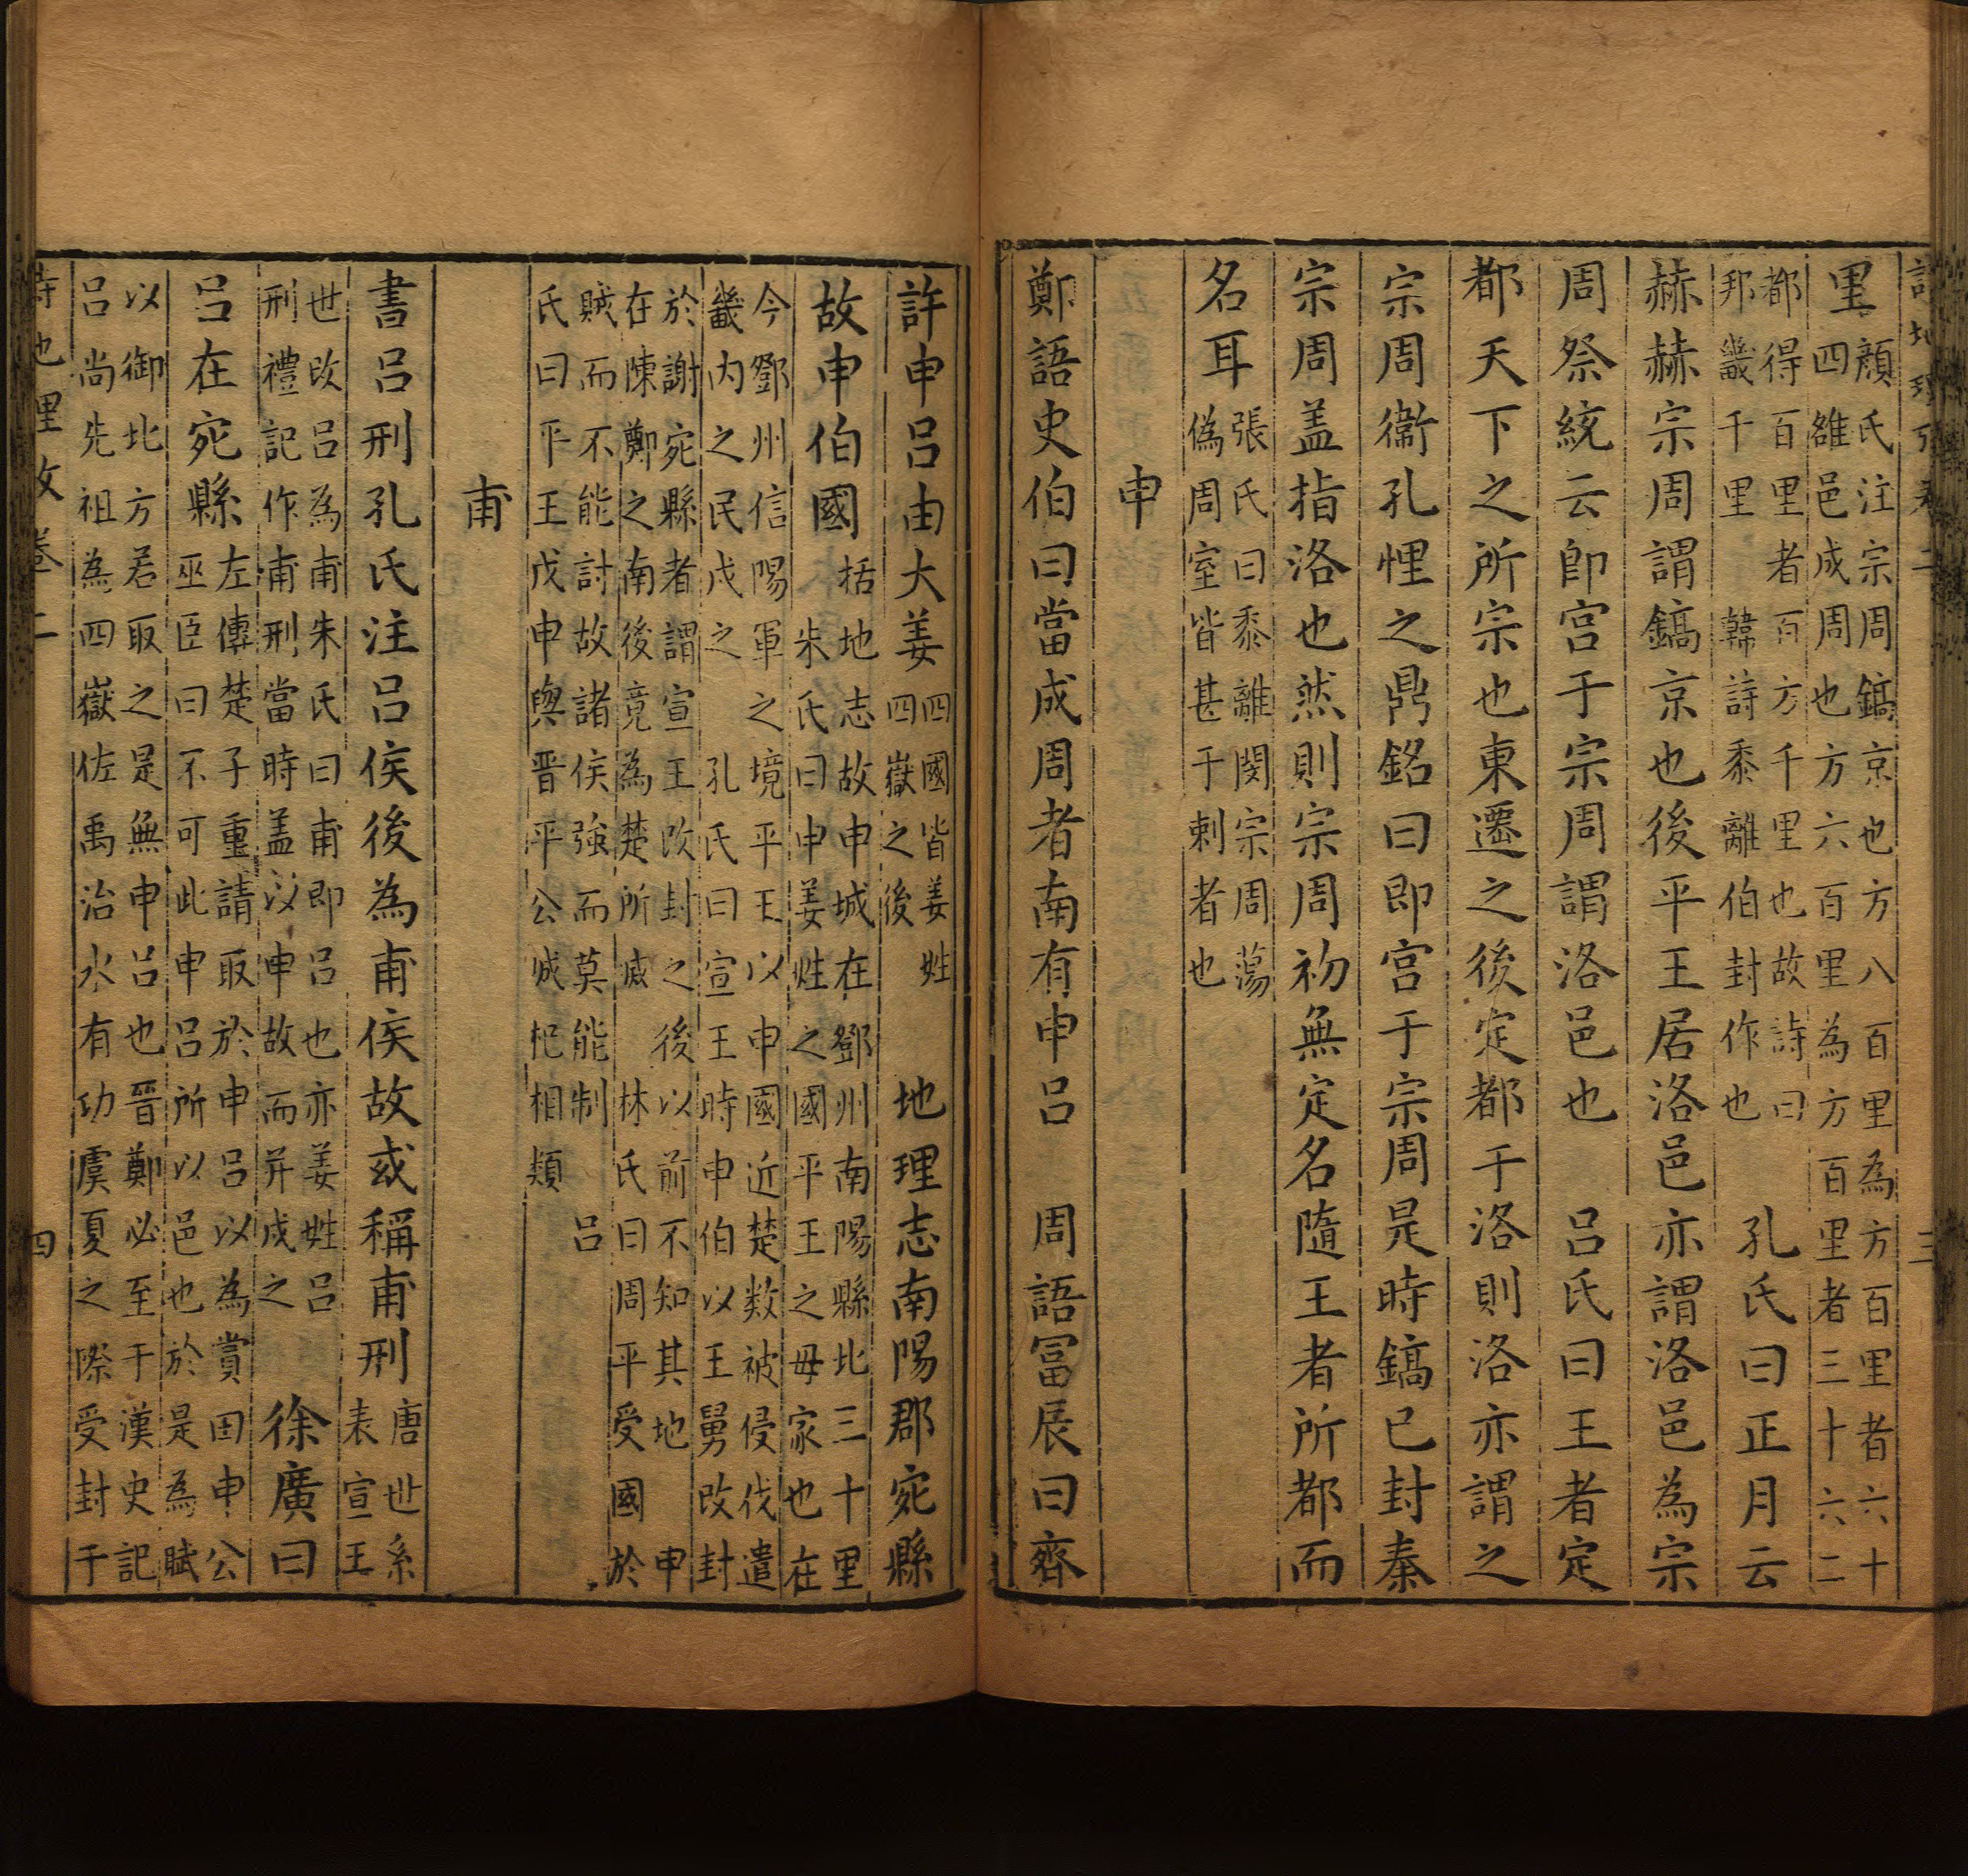 詩地理攷卷二 三
里顏氏注宗周鎬京也方八百里為方百里者六十
四雒邑成周也方六百里為方百里者三十六二
都得百里者百方千里也故詩曰
邦畿千里 韓詩黍離伯封作也 孔氏曰正月云
赫赫宗周謂鎬京也後平王居洛邑亦謂洛邑為宗
周祭統云即宫于宗周謂洛邑也 呂氏曰王者定
都天下之所宗也東遷之後定都于洛則洛亦謂之
宗周衞孔悝之鼎銘曰即宫于宗周是時鎬已封秦
宗周盖指洛也然則宗周初無定名隨王者所都而
名耳張氏曰黍離閔宗周蕩
偽周室皆甚于刺者也
申
鄭語史伯曰當成周者南有申呂 周語冨辰曰齊
許申呂由大姜四國皆姜姓
四嶽之後 地理志南陽郡宛縣
故申伯國括地志故申城在鄧州南陽縣北三十里
朱氏曰申姜姓之國平王之母家也在
今鄧州信陽軍之境平王以申國近楚数被侵伐遣
畿内之民戍之 孔氏曰宣王時申伯以王舅改封
於謝宛縣者謂宣王改封之後以前不知其地 申
在陳鄭之南後竟為楚所滅 林氏曰周平受國於
賊而不能討故諸侯強而莫能制 呂
氏曰平王戍申與晋平公城杞相類
甫
書呂刑孔氏注呂侯後為甫侯故或稱甫刑唐世系
表宣王
世改呂為甫朱氏曰甫即呂也亦姜姓呂
刑禮記作甫刑當時盖以申故而并戍之 徐廣曰
呂在宛縣左傳楚子重請取於申呂以為賞田申公
巫臣曰不可此申呂所以邑也於是為賦
以御北方若取之是無申呂也晋鄭必至于漢史記
呂尚先祖為四嶽佐禹治水有功虞夏之際受封于
詩地理攷卷二 四